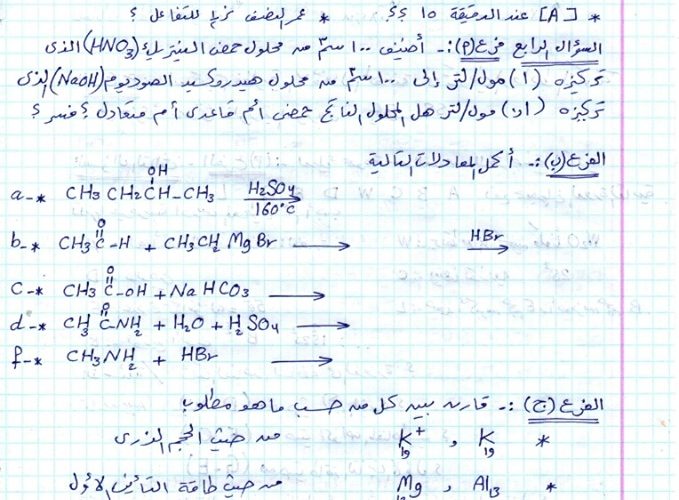 * [A] عند الدقيقة 15 ؟؟ * عمر النصف نزيا للتفاعل ؟
السؤال الرابع فرع (م) :- أضيف 100 سم٣ من محلول حمض النيتريك (HNO3) الذي
تركيزه (1) مول/لتر إلى 100 سم٣ من محلول هيدروكسيد الصوديوم (NaOH) الذي
تركيزه مول/لتر هل المحلول الناتج حمضي أم قاعدي أم متعادل ؟ فسر ؟
الفرع (ب) :- أكمل المعادلات التالية
OH
a-* CH3 CH2 CH-CH3 H2SO4 160°C
O
b-* CH3 C-H + CH3CH2 MgBr ⟶ HBr ⟶
O
C-* CH3 C-OH + NaHCO3 ⟶
O
d-* CH3 C-NH2 + H2O + H2SO4 ⟶
f-* CH3NH2 + HBr ⟶
الفرع (ج) :- قارن بين كل من حسب ما هو مطلوب
* 19K , 19K+ من حيث الحجم الذري
* Al13 , Mg من حيث طاقة التأين الأول